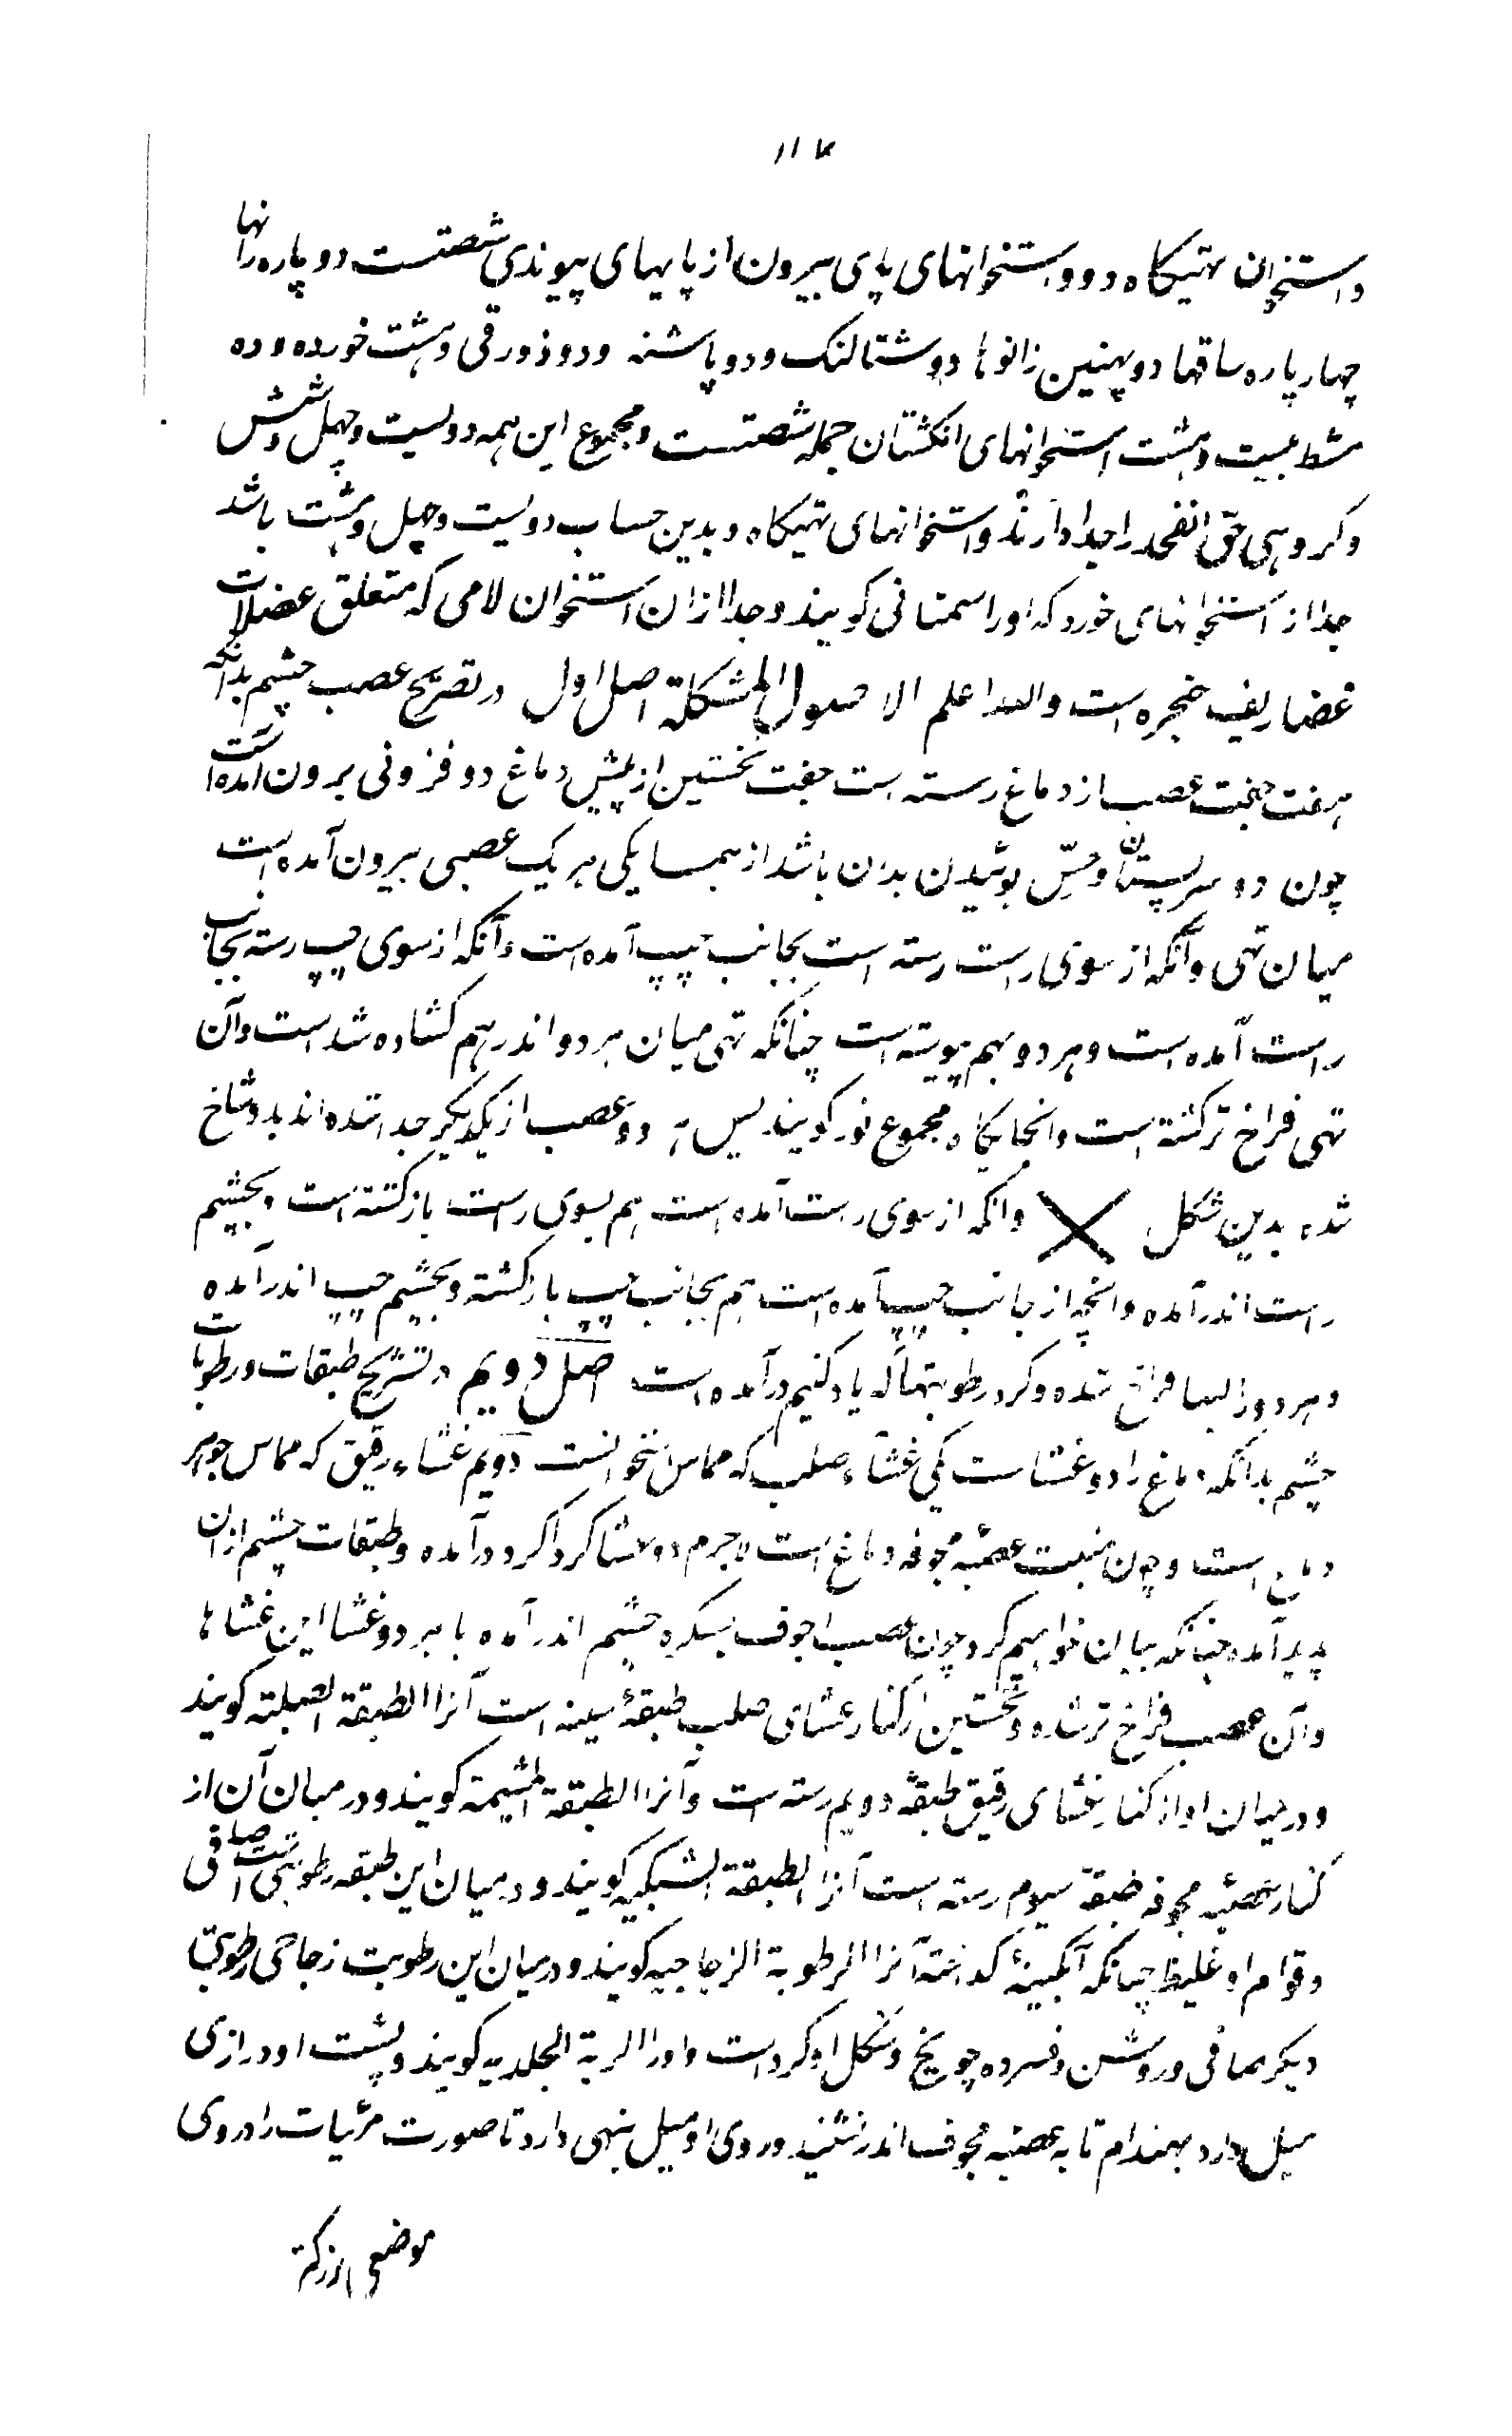 ۱۱۴
واستخوان تهیکاه دو و استخوانهای پای بیرون از پایهای پیوندی شصتست دو پاره رانها
چهار پاره ساقها دو پهنین زانوها دو شتالنک و دو پاشنه و دو زورقی و هشت خورده و ده
مشط بیست و هشت استخوانهای انکشتان جمله شصتست و مجموع این همه دویست و چهل و شش
و کروهی حق الفخد را جدا دارند و استخوانهای تهیکاه و بدین حساب دویست و چهل و هشت باشد
جدا از استخوانهای خورد که او را سمسانی کویند و جدا از ان استخوان لامی که متعلق عضلات
غضاریف حنجره است والله اعلم الاصول المشکلة اصل اول در تصریح عصب چشم بدانکه
هفت جفت عصب از دماغ رسته است جفت نخستین از پیش دماغ دو فزونی برون آمده است
چون دو سر پستان و حسّ بوئیدن بدن باشد از همسایکی هر یک عصبی بیرون آمده است
میان تهی و آنکه از سوی راست رسته است بجانب چپ آمده است و آنکه از سوی چپ رسته بجانب
راست آمده است و هر دو بهم پیوسته است چنانکه تهی میان هر دو اندر هم کشاده شد است و آن
تهی فراخ تر کشته است وانجایکاه مجموع نور کویند پس دو عصب از یکدیکر جدا شده اند بدو شاخ
شده بدین شکل وانکه از سوی راست آمده است هم بسوی راست بازکشته است و بچشم
راست اندر آمده وانچه از جانب چپ آمده است هم بجانب چپ بازکشته و بچشم چپ اندر آمده
و هر دو فراخ شده و کرد رطوبتها که یاد کنیم درآمده است اصل دویم در تشریح طبقات و رطوبات
چشم بدانکه دماغ را دو غشاست یکی غشاء صلب که مماس تخوانست دویم غشاء رقیق که مماس جوهر
دماغ است و چون منبت عصبه مجوفه دماغ است لاجرم دو غشا کرداکرد درآمده و طبقات چشم ازان
پدید آمده چنانکه بیان خواهیم کرد چون عصب اجوف بسکره چشم اندر آمده با هر دو غشا این غشاها
وآن عصب فراخ تر شده و نخستین از کنار غشای صلب طبقهٔ رسته است آنرا الطبقة الصلبته کویند
و در میان او از کنار غشای رقیق طبقهٔ دویم رسته است و آنرا الطبقة المشیمة کویند و در میان آن از
کنار عصبه مجوفه طبقهٔ سیوم رسته است آنرا الطبقة الشبکیه کویند و در میان این طبقه رطوبتی است صافی
و قوام او غلیظ چنانکه آبکینهٔ کداخته آنرا الرطوبة الزجاجیه کویند و درمیان این رطوبت زجاجی رطوبتی
دیکر صافی و روشن و فسرده چو یخ و شکل او کرد است و اورا الربة الجلدیه کویند و پشت او درازی
میل دارد بهندام تا به عصبه مجوف اندر نشیند و روی او میل بپهنی دارد تا صورت مرئیات را در وی
موضعی